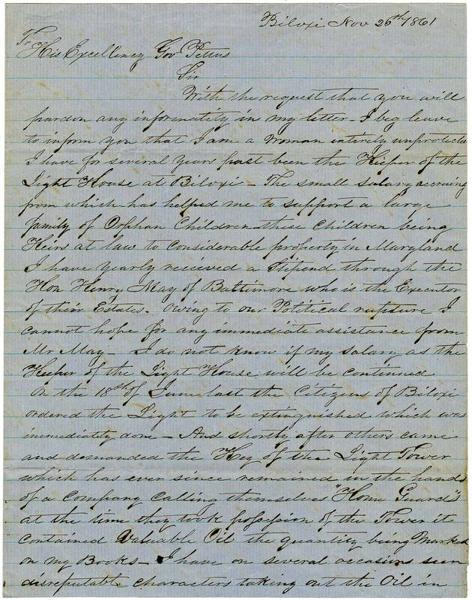 Biloxi Nov 26th 1861
To
His Excellency Gov Pettus
Sir
With the request that you will
pardon any informality in my letter. I beg leave
to inform you that I am a woman entirely unprotected
I have for several years past been the Keeper of the
Light House at Biloxi - The small salary accruing
from which has helped me to support a large
family of Orphan Children these Children being
Heirs at law to considerable property in Maryland
I have yearly recieved a Stipend through the
Hon Henry May of Baltimore who is the Executor
of their Estates. Owing to our Political rupture I
cannot hope for any immediate assistance from
Mr May - I do not know if my salary as the
Keeper of the Light House will be continued
On the 18th of June last the Citizens of Biloxi
ordered the Light to be extinguished which was
immediately done - And shortly after others came
and demanded the Key of the Light Tower
which has ever since remained in the hands
of a Company calling themselves "Home Guards"
at the time they took possession of the Tower it
contained Valuable Oil the quantity being marked
on my Books - I have on several occasions seen
disreputable characters taking out the Oil in